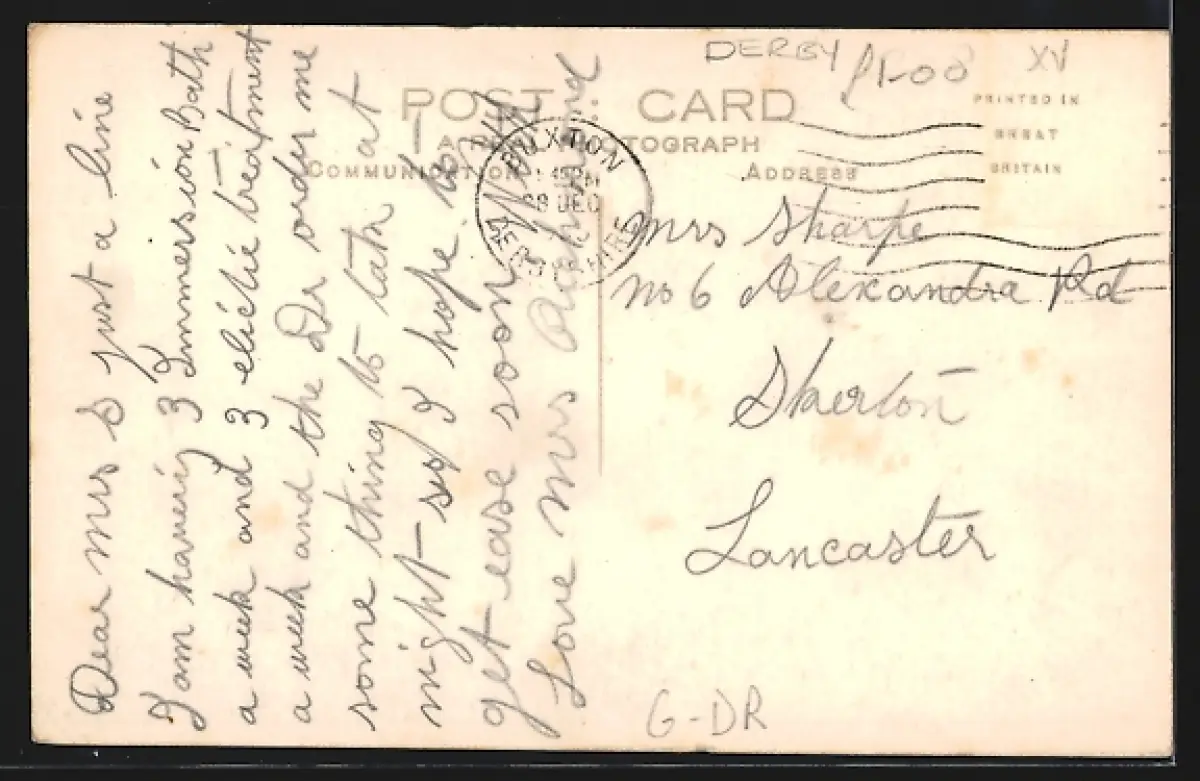 DERBY £1-00 XV
POST CARD
A REAL PHOTOGRAPH
COMMUNICATION
ADDRESS
PRINTED IN
GREAT
BRITAIN
BUXTON
28 DEC
DERBYSHIRE
Dear Mrs S just a line
I am having 3 Immersion Bath
a week and 3 elictic treatment
a week and the Dr order me
some thing to take at
night so I hope to
get ease soon
Love Mrs
Mrs Sharpe
No 6 Alexandra Rd
Skerton
Lancaster
G-DR